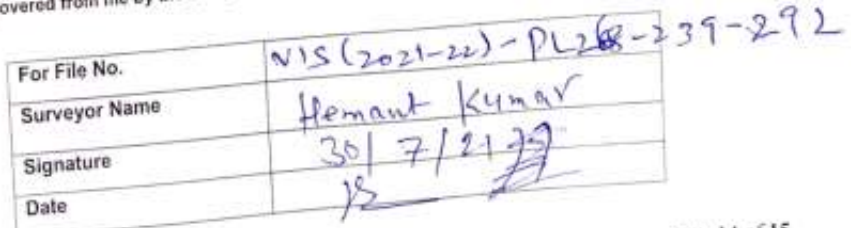 overed from me by
For File No. VIS (2021-22) - PL268-239-292
Surveyor Name Hemant Kumar
Signature 30/7/21
Date